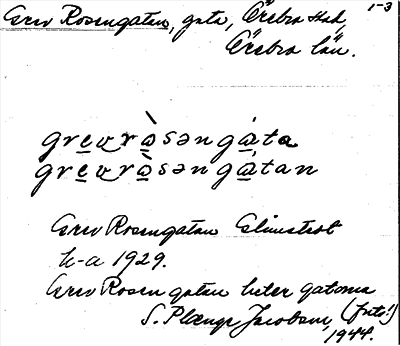 Grev Rosengatan, gata, Örebro stad, 1-3
Örebro län.
grevròsəngáta
grevròsəngátan
Grev Rosengatan
k-a 1929.
Grev Rosengatan heter gatorna (Inte!)
S. Plænge Jacobson, 1944.